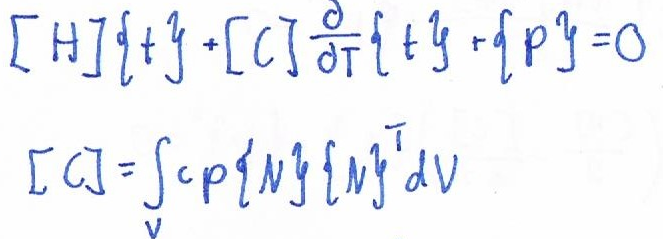 [H]{t} + [C] ∂/∂T {t} + {p} = 0
[C] = ∫_V cρ{N}{N}^T dV